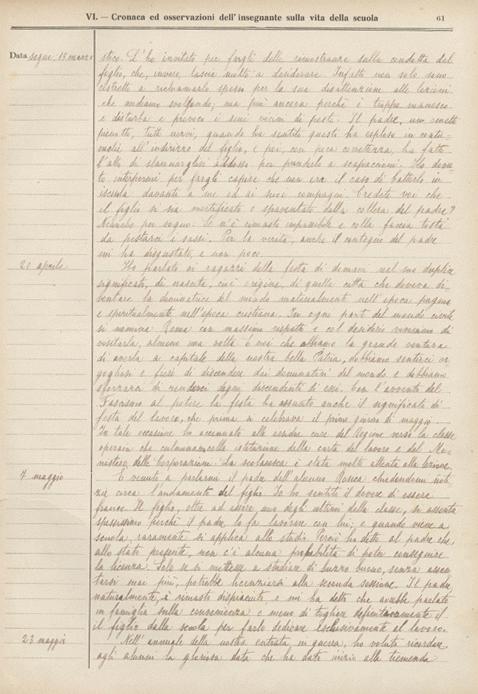 VI. – Cronaca ed osservazioni dell'insegnante sulla vita della scuola 61
Data segue 18 marzo
stico. L'ho invitato per fargli delle rimostranze sulla condotta del
figlio, che, invero, lascia molto a desiderare. Infatti non solo sono
costretto a richiamarlo spesso per la sua disattenzione alle lezioni
che andiamo svolgendo, ma più ancora perché è troppo manesco
e disturba e provoca i suoi vicini di posto. Il padre, un ometto
piccolo, tutto nervi, quando ha sentito questo ha esploso in
all'indirizzo del figlio, e poi, con poca correttezza, ha fatto
l'atto di slanciarglisi addosso per prenderlo a scapaccioni. Ho dovu
to interpormi per fargli capire che non era il caso di batterlo in
iscuola davanti a me ed ai suoi compagni. Credete voi che
il figlio si sia mortificato e spaventato della collera del padre?
Neanche per sogno. Se n'è rimasto impassibile e colla faccia tosta
da pestarci i sassi. Per la verità, anche il contegno del padre
mi ha disgustato, e non poco.
20 aprile
Ho parlato ai ragazzi della festa di domani nel suo duplice
significato, di nascita, cioè origine, di quella città che doveva di-
ventare la dominatrice del mondo materialmente nell'epoca pagana
e spiritualmente nell'epoca cristiana. In ogni parte del mondo civile
si nomina Roma con massimo rispetto e col desiderio vivissimo di
visitarla, almeno una volta. E noi che abbiamo la grande ventura
di averla a capitale della nostra bella Patria, dobbiamo sentirci or
gogliosi e fieri di discendere dai dominatori del mondo e dobbiamo
sforzarci di renderci degni discendenti di essi. Con l'avvento del
Fascismo al potere la festa ha assunto anche il significato di
festa del lavoro, che prima si celebrava il primo giorno di maggio.
In tale occasione ho accennato alle assidue cure del Regime verso la classe
operaia che culminano colla istituzione della carta del lavoro e del Mi-
nistero delle Corporazioni. La scolaresca è stata molto attenta alla lezione.
7 maggio
È venuto a parlarmi il padre dell'alunno chiedendomi noti
zie circa l'andamento del figlio. Io ho sentito il dovere di essere
franco. Il figlio, oltre ad essere uno degli ultimi della classe, si assenta
spessissimo perché il padre lo fa lavorare con lui, e quando viene a
scuola, raramente si applica allo studio. Perciò ho detto al padre che,
allo stato presente, non c'è alcuna probabilità di poter conseguire
la licenza. Solo se si mettesse a studiare di buzzo buono, senza assen
tarsi mai più, potrebbe licenziarsi alla seconda sessione. Il padre,
naturalmente, è rimasto dispiaciuto e mi ha detto che avrebbe parlato
in famiglia sulla convenienza o meno di togliere definitivamente
il figlio dalla scuola per farlo dedicare esclusivamente al lavoro.
23 maggio
Nell'annuale della nostra entrata in guerra, ho voluto ricordare
agli alunni la gloriosa data che ha dato inizio alla tremenda